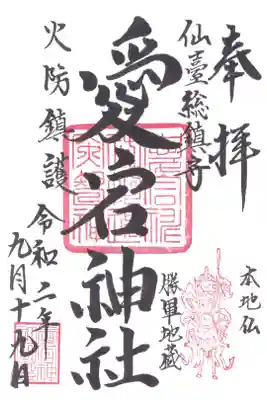 奉拝
仙臺総鎮守
愛宕神社
火防鎮護
令和二年
九月十九日
本地仏
勝軍地蔵